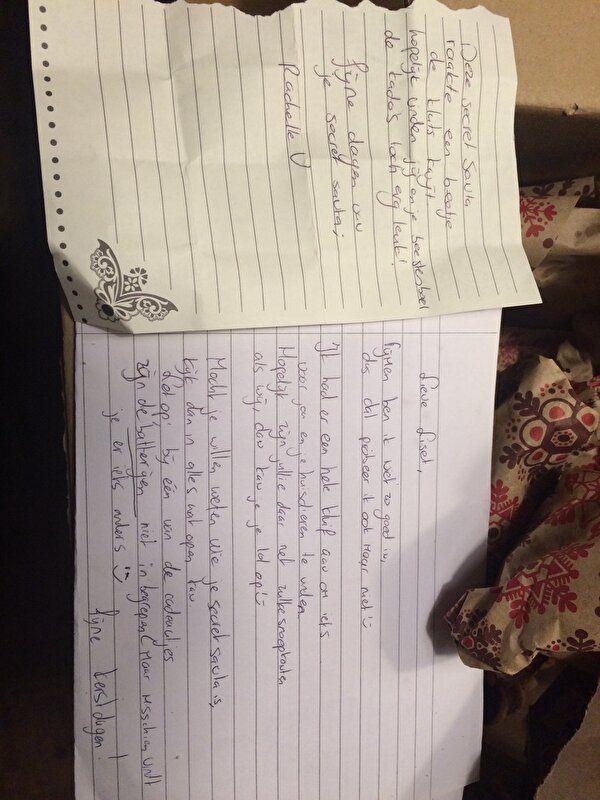 Deze secret santa
raakte een beetje
de kluts kwijt.
hopelijk vinden jij en je beestenboel
de kado's toch erg leuk!
Fijne dagen van
je secret santa;
Rachelle
Lieve Liset,
Rijmen ben ik niet zo goed in,
dus dat probeer ik ook maar niet
Ik had er een hele kluif aan om iets
voor jou en je huisdieren te vinden.
Hopelijk zijn jullie daar net zulke snoepkonten
als wij, dan kan je je lol op!
Mocht je willen weten wie je secret santa is,
kijk dan in alles wat open kan
Let op: bij één van de cadeautjes
zijn de batterijen niet inbegrepen (Maar msschien vindt
je er iets anders in
Fijne kerstdagen!